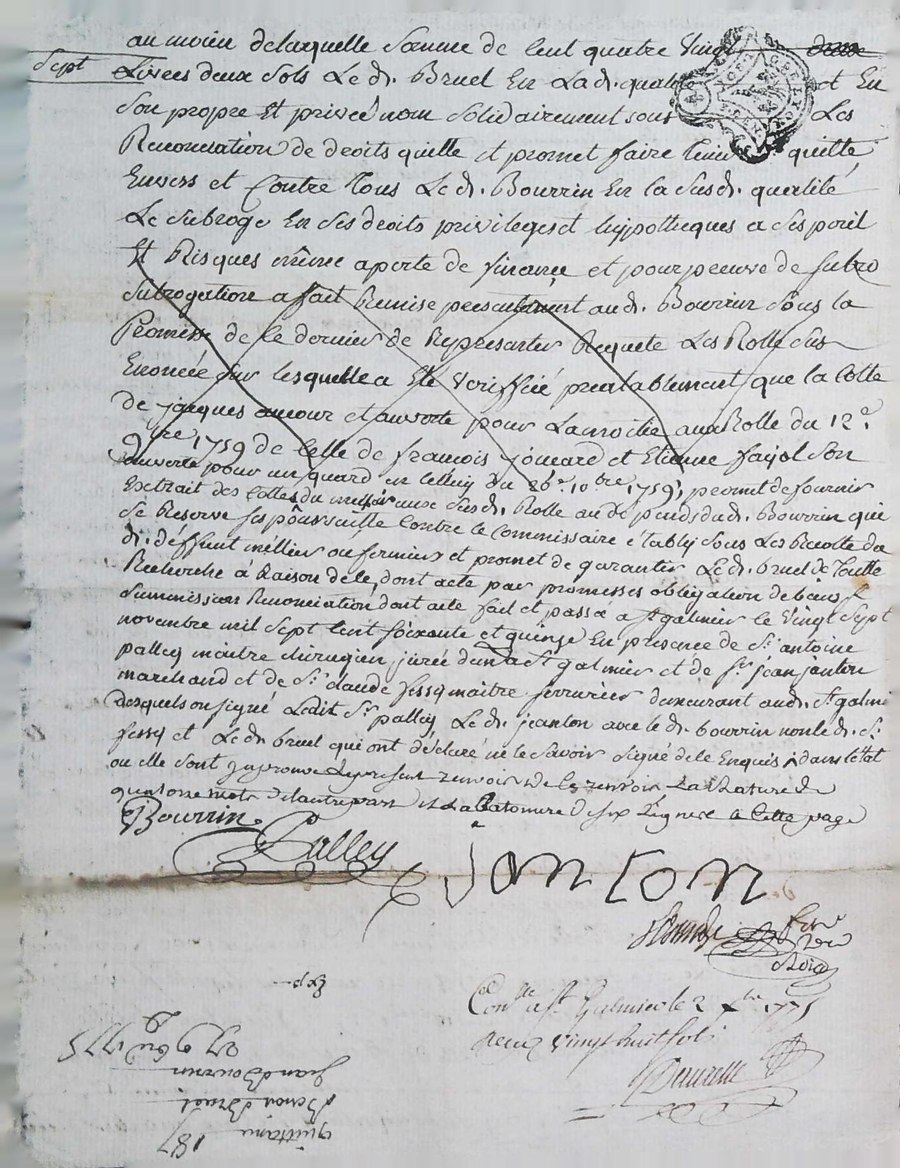 au moien de laquelle somme de Cent quatre vingt
Sept
Livres deux sols Le d. Bruel En La d. et En
Son propre Et privée nom Solidairement sous Les
Renonciation de droits quitte et promet faire tenir quitte
Envers et Contre tous Le d. Bourrin En la susd. qualité
Le subroge En ses droits privileges et hypotheques a ses peril
Et Risques même a perte de finance et pour preuve de subro
subrogation a fait Remise presentement aud. Bourrin sous la
Promesse de Ce dernier de Representer Requete Les Rolle sus
Enoncée sur lesquelle a Eté veriffiée prealablement que la Cotte
de jacques amour et ouverte pour Laroche au Rolle du 12e
9bre 1759 de Celle de francois jouard et Etienne fayol son
ouverte pour un quard en Celluy du 26e 10bre 1759, permet de fournir
Extrait des Cottes du susd. Rolle au depends dud. Bourrin qui
se Reserve ses poursuitte Contre le Commissaire établi sous Les Recolte du
d. déffunt méllier ou fermier et promet de garantir Le d. bruel de toutte
Recherche à Raison de Ce, dont acte par promesses obligation de biens
Summission Renonciation dont acte fait et passé a st galmier le vingt sept
novembre mil sept Cent soixante et quinze En presence de Sr. antoine
palley maitre chirurgien jurée dud. st galmier et de Sr. jean janton
marchand et de Sr. claude fessy maitre serrurier demeurant aud. st galmi
Lesquels on signé Ledit Sr. palley Le d. jeanton avec le d. bourrin non le d. Sr.
fessy et Le d. bruel qui ont déclaré ne le savoir signé de Ce Enquis dans l'état
ou elle sont japrouve Le present renvoir La Rature de
quatorze mots de l'autre part et La Ratomure de six Lignes à Cette page
Bourrin.
Palley
janton
Conlle a st Galmier le 2 xbre 1775
vingt huit sols
Exp
27 9bre 1775
jean Bourrin
Benoit Bruel
quittance 187